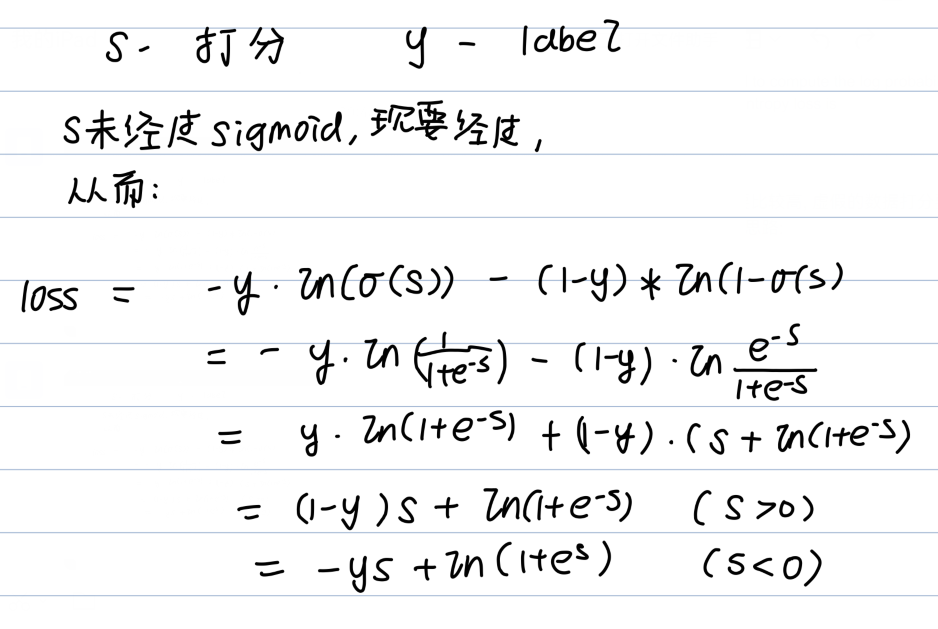 S - 打分 y - label
S未经过sigmoid, 现要经过,
从而:
loss = -y · ln(σ(s)) - (1-y) * ln(1-σ(s)
= - y · ln(1/(1+e^-s)) - (1-y) · ln e^-s/(1+e^-s)
= y · ln(1+e^-s) + (1-y) · (s + ln(1+e^-s)
= (1-y)s + ln(1+e^-s) (s>0)
= -ys + ln(1+e^s) (s<0)